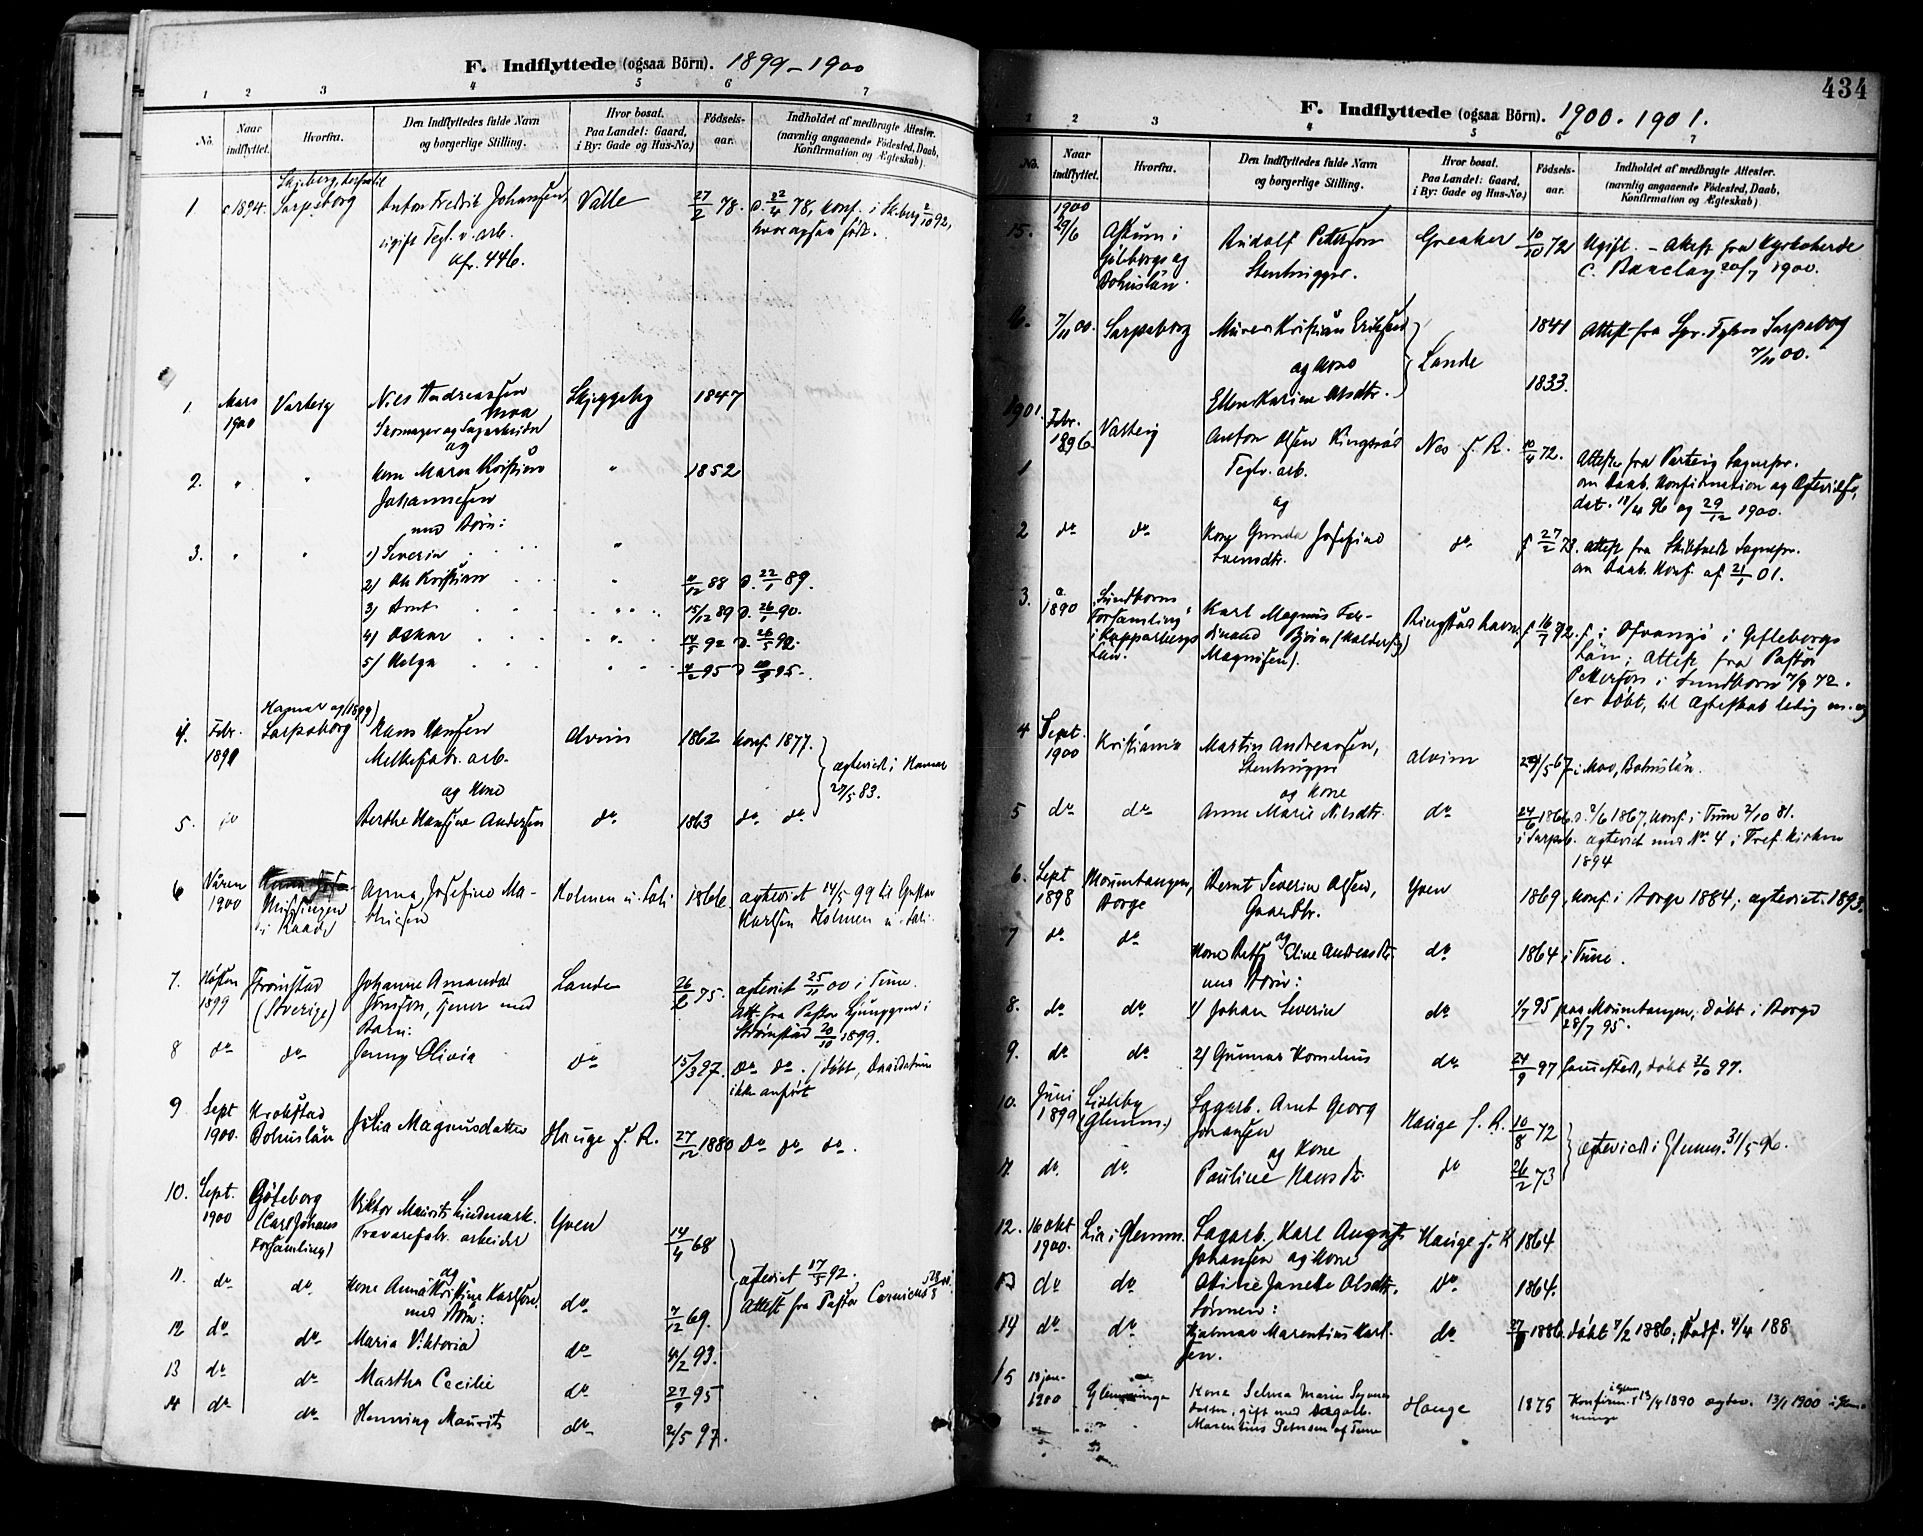 F. Indflyttede (ogsaa Börn). 1899-1900
1 2 3 4 5 6 7
No. Naar indflyttet. Hvorfra. Den Indflyttedes fulde Navn og borgerlige Stilling. Hvor bosat. Paa Landet: Gaard, i By: Gade og Hus-No.) Fødsels-aar. Indholdet af medbragte Attester. (navnlig angaaende Fødested, Daab, Konfirmation og Ægteskab)
Skjeberg, derfra til
1. c 1894. Sarpsborg Anton Fredrik Johansen, Valle 27/2 78. D. 22/4 78, konf. i Skjeberg 2/10 92,
ugift Tegl.v. arb. hvor ogsaa født.
afr. 446.
1. Mars Varteig Nils Andreassen Skjeggeby 1847
1900 Moa
Skomager og Sagarbeider
og
2. " " Kone Maren Kristine " 1852
Johannesen
med Børn:
3. " " 1) Severin "
2) Ole Kristian " 11/12 88 D. 22/1 89.
3) Arnt " 15/12 89 D. 26/1 90.
4) Oskar " 14/5 92 D. 26/5 92.
5) Helga " 4/2 95 D. 10/3 95.
Hamar og (1899)
4. Febr. Sarpsborg Hans Hansen Alvim 1862 Konf. 1877.
1899 Melkefabr. arb. ægteviet i Hamar
og Kone 27/5 83.
5. do Berthe Hansine Andersen do 1863 do do
6 Våren Missingen Anna Josefine Ma- Holmen u. Tali 1866 ægteviet 14/5 99 til Gustav
1900 i Raade thiesen Karlsen Holmen u. Tali.
7. Høsten Strömstad Johanne Amanda Lande 26/2 75. ægteviet 25/11 00 i Tune.
1899 (Sverige) Jonsson, tjener med Att. fra Pastor Ljunggren i
Barn: Strömstad 20/10 1899.
8 do do Jenny Olivia do 15/3 97. do do. (døbt, Daabsdatum
ikke anført
9 Sept Krokstad Julia Magnusdatter Hauge f. R. 27/12 1880 do do do.
1900. Bohuslän
10. Sept. Göteborg Viktor Maurits Lindemark. Yven 14/4 68
1900 (Carl Johans Trævarefabr. arbeider
Forsamling) og ægteviet 17/5 92.
11. do do Kone Anna Kristine Karlsson do 7/12 69. Attest fra Pastor Cornicus
med Børn:
12 do do Maria Viktoria do 4/2 93.
13 do do Martha Cecilie do 27/9 95
14 do do Henning Maurits do 2/5 97.
434
F. Indflyttede (ogsaa Börn). 1900. 1901.
1 2 3 4 5 6 7
No. Naar indflyttet. Hvorfra. Den Indflyttedes fulde Navn og borgerlige Stilling. Hvor bosat. Paa Landet: Gaard, i By: Gade og Hus-No.) Fødsels-aar. Indholdet af medbragte Attester. (navnlig angaaende Fødested, Daab, Konfirmation og Ægteskab)
1900
15. 29/6 Askum i Rudolf Petterson Greaker 10/10 72 Ugift. - Attest fra Kyrkoherde
Göteborgs og Stenhugger. C. Barclay 20/7 1900.
Bohuslän.
16. 7/11 00. Sarpsborg Murer Kristian Eriksen 1841 Attest fra Spr. Sarpsborg
og Kone Lande 7/11 00.
Ellen Karine Olsdtr. 1833.
1901. Febr.
1 1896 Varteig Anton Olsen Ringsrød Nes f. R. 10/4 72. Attest fra Varteig Sognepr.
Teglv. arb. om Daab, Konfirmation og Ægtevielse,
og dat. 18/4 96 og 29/12 1900.
2 do do Kone Gunda Josefine do f 27/2 73. Attest fra Skiptvedt Sognepr.
Svensdtr. om Daab, Konf. af 21/1 01.
3. a 1890 Sundborns Karl Magnus Fer- Ringstad havn f 16/7 72. f. i Ofvansjö i Gefleborgs
Forsamling dinand Björn Län; Attest fra Pastor
i Kopparbergs Magnisen). Petterson i Sundborn 7/9 72.
Län. (er døbt, til Ægteskab ledig
4 Sept. Kristiania Martin Andreassen, Alvim 24/5 67 i Moo, Bohuslän.
1900 Stenhugger
og Kone
5 do do Anne Marie Nilsdtr. do 24/6 1866. D. 2/6 1867, konf. i Tune 2/10 81.
i Sarpsb. ægteviet med No 4 i Tref. kirken
1894
6. Sept Moumtangen, Bernt Severin Olsen, Yven 1869, konf. i Borge 1884; ægteviet 1893.
1898 Borge Gaardbr.
og
7 do do Kone Betzy Eline Andreasdtr. do 1864 i Tune.
med Børn:
8. do do 1/ Johan Severin do 1/7 95 paa Moumtangen, døbt i Borge
28/7 95.
9. do do 2/ Gunnar Kornelius do 24/9 97 sammested, døbt 31/10 97.
10. Juni Lisleby Sagarb. Arnt Georg Hauge f. R. 10/8 72
1899 (Glemm.) Johansen ægteviet i Glemm. 31/5 96.
og Kone
11. do. do. Pauline Hansdtr. do 26/2 73
12. 16 Okt Lie i Glemm. Sagarb. Karl August Hauge f. R 1864
1900. Johansen og Kone
13 do do Otine Janette Olsdtr. do 1864.
Sønnen:
14 do do Hjalmar Marentius Karl- do 27/1 1886. døbt 7/2 1886,
sen.
15 18 jan- Glemminge Kone Selma Marie Hauge 1875 Konfirm. i Glem 13/4 1890 ægtev. 13/1 1900 i Glem-
1900 datter, gift med sagarb. minge
Marentius Petersen af Tune